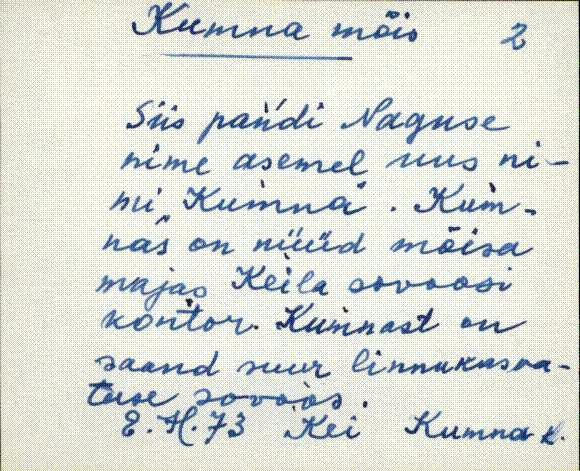 Kumna mõis 2
Siis pańdi Naguse
nime asemel uus ni-
mi "Kumna". Kum-
nas on nüüd mõisa
majas Keila sovoosi
kontor. Kumnast on
saand suur linnukasva-
tuse sovoos.
E. H. 73 Kei Kumna k.